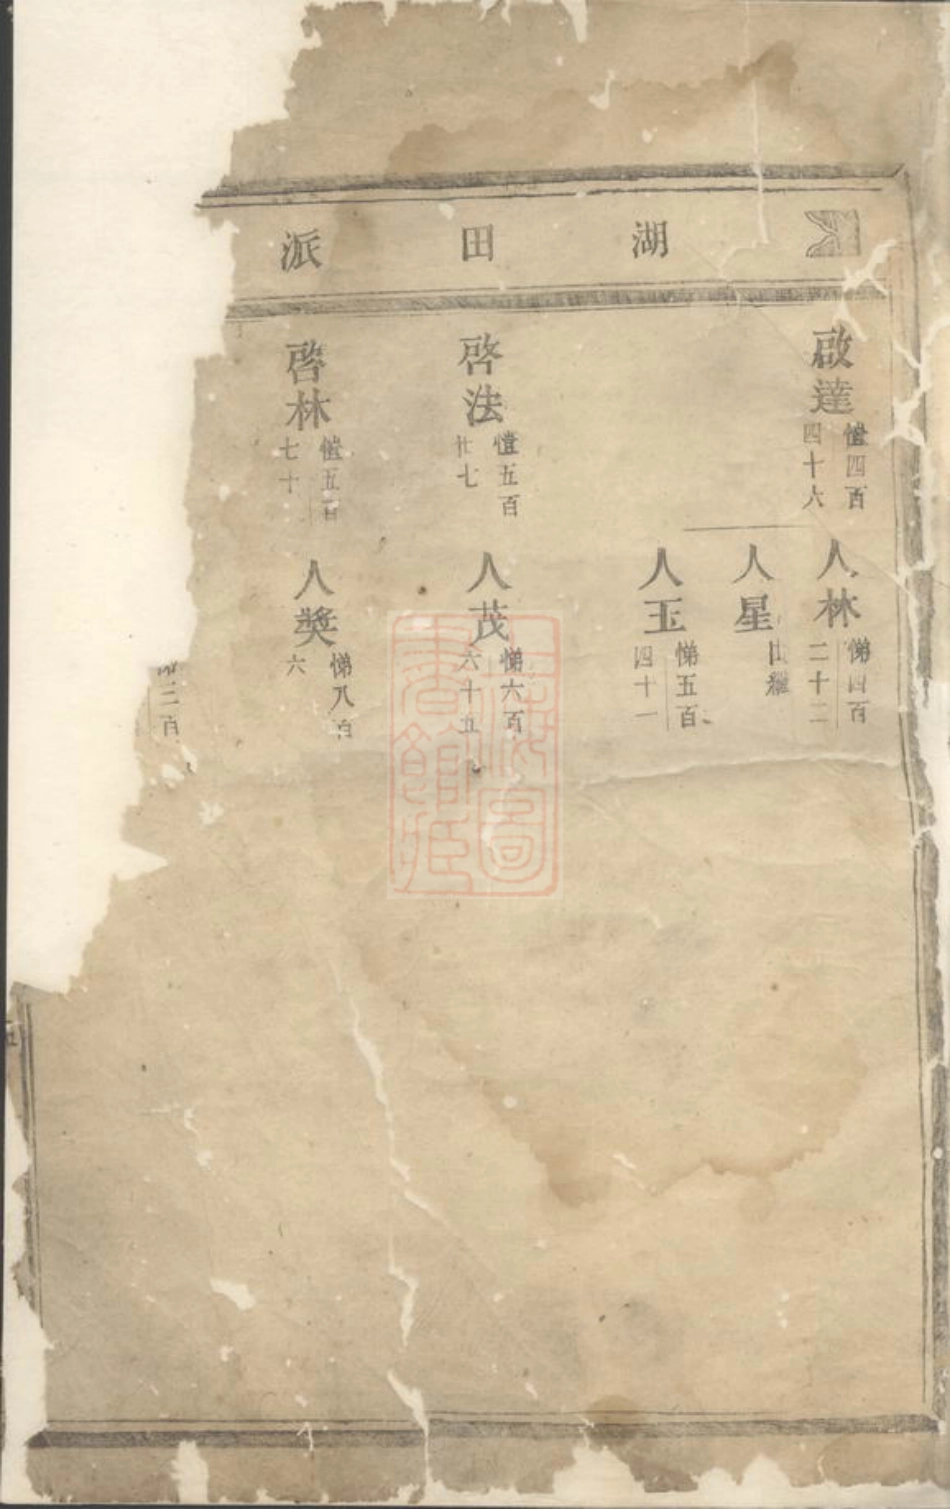 湖田派
啟達
愷四百
四十六
人林
悌四百
二十二
人星
出繼
人玉
悌五百
四十一
啓法
愷五百
廿七
人茂
悌六百
六十五
啓林
愷五百
七十
人獎
悌八百
六
二百